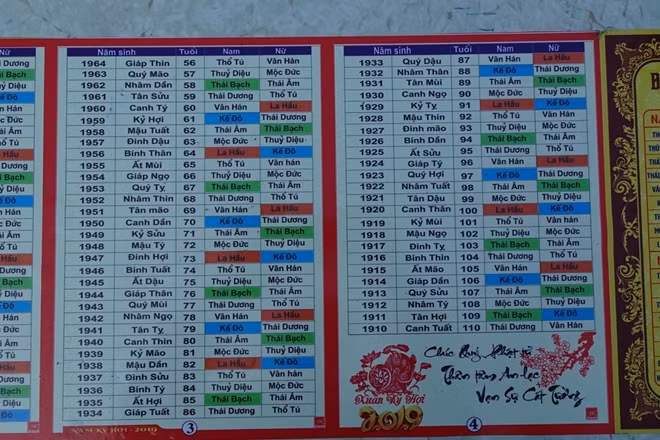 Nữ
Năm sinh Tuổi Nam Nữ
1964 Giáp Thìn 56 Thổ Tú Vân Hán
1963 Quý Mão 57 Thuỷ Diệu Mộc Đức
1962 Nhâm Dần 58 Thái Bạch Thái Âm
1961 Tân Sửu 59 Thái Dương Thổ Tú
1960 Canh Tý 60 Vân Hán La Hầu
1959 Kỷ Hợi 61 Kế Đô Thái Dương
1958 Mậu Tuất 62 Thái Âm Thái Bạch
1957 Đinh Dậu 63 Mộc Đức Thuỷ Diệu
1956 Bính Thân 64 La Hầu Kế Đô
1955 Ất Mùi 65 Thổ Tú Vân hán
1954 Giáp Ngọ 66 Thuỷ Diệu Mộc Đức
1953 Quý Tỵ 67 Thái Bạch Thái Âm
1952 Nhâm Thìn 68 Thái Dương Thổ Tú
1951 Tân mão 69 Vân Hán La Hầu
1950 Canh Dần 70 Kế Đô Thái Dương
1949 Kỷ Sửu 71 Thái Âm Thái Bạch
1948 Mậu Tý 72 Mộc Đức Thuỷ Diệu
1947 Đinh Hợi 73 La Hầu Kế Đô
1946 Bính Tuất 74 Thổ Tú Vân Hán
1945 Ất Dậu 75 Thuỷ Diệu Mộc Đức
1944 Giáp Thân 76 Thái Bạch Thái Âm
1943 Quý Mùi 77 Thái Dương Thổ Tú
1942 Nhâm Ngọ 78 Vân Hán La Hầu
1941 Tân Tỵ 79 Kế Đô Thái Dương
1940 Canh Thìn 80 Thái Âm Thái Bạch
1939 Kỷ Mão 81 Mộc Đức Thuỷ Diệu
1938 Mậu Dần 82 La Hầu Kế Đô
1937 Đinh Sửu 83 Thổ Tú Vân Hán
1936 Bính Tý 84 Thuỷ Diệu Mộc Đức
1935 Ất Hợi 85 Thái Bạch Thái Âm
1934 Giáp Tuất 86 Thái Dương Thổ Tú
NĂM KỶ HỢI - 2019 3
Năm sinh Tuổi Nam Nữ
1933 Quý Dậu 87 Vân Hán La Hầu
1932 Nhâm Thân 88 Kế Đô Thái Dương
1931 Tân Mùi 89 Thái Âm Thái Bạch
1930 Canh Ngọ 90 Mộc Đức Thuỷ Diệu
1929 Kỷ Tỵ 91 La Hầu Kế Đô
1928 Mậu Thìn 92 Thổ Tú Vân Hán
1927 Đinh mão 93 Thuỷ Diệu Mộc Đức
1926 Bính Dần 94 Thái Bạch Thái Âm
1925 Ất Sửu 95 Thái Dương Thổ Tú
1924 Giáp Tý 96 Vân Hán La Hầu
1923 Quý Hợi 97 Kế Đô Thái Dương
1922 Nhâm Tuất 98 Thái Âm Thái Bạch
1921 Tân Dậu 99 Mộc Đức Thuỷ Diệu
1920 Canh Thân 100 La Hầu Kế Đô
1919 Kỷ Mùi 101 Thổ Tú Vân Hán
1918 Mậu Ngọ 102 Thuỷ Diệu Mộc Đức
1917 Đinh Tỵ 103 Thái Bạch Thái Âm
1916 Bính Thìn 104 Thái Dương Thổ Tú
1915 Ất Mão 105 Vân Hán La Hầu
1914 Giáp Dần 106 Kế Đô Thái Dương
1913 Quý Sửu 107 Thái Âm Thái Bạch
1912 Nhâm Tý 108 Mộc Đức Thuỷ Diệu
1911 Tân Hợi 109 Thái Bạch Kế Đô
1910 Canh Tuất 110 Thái Dương Vân Hán
Chúc Quý Phật tử
Thân tâm An lạc
Vạn Sự Cát Tường
Xuân Kỷ Hợi
2019
4